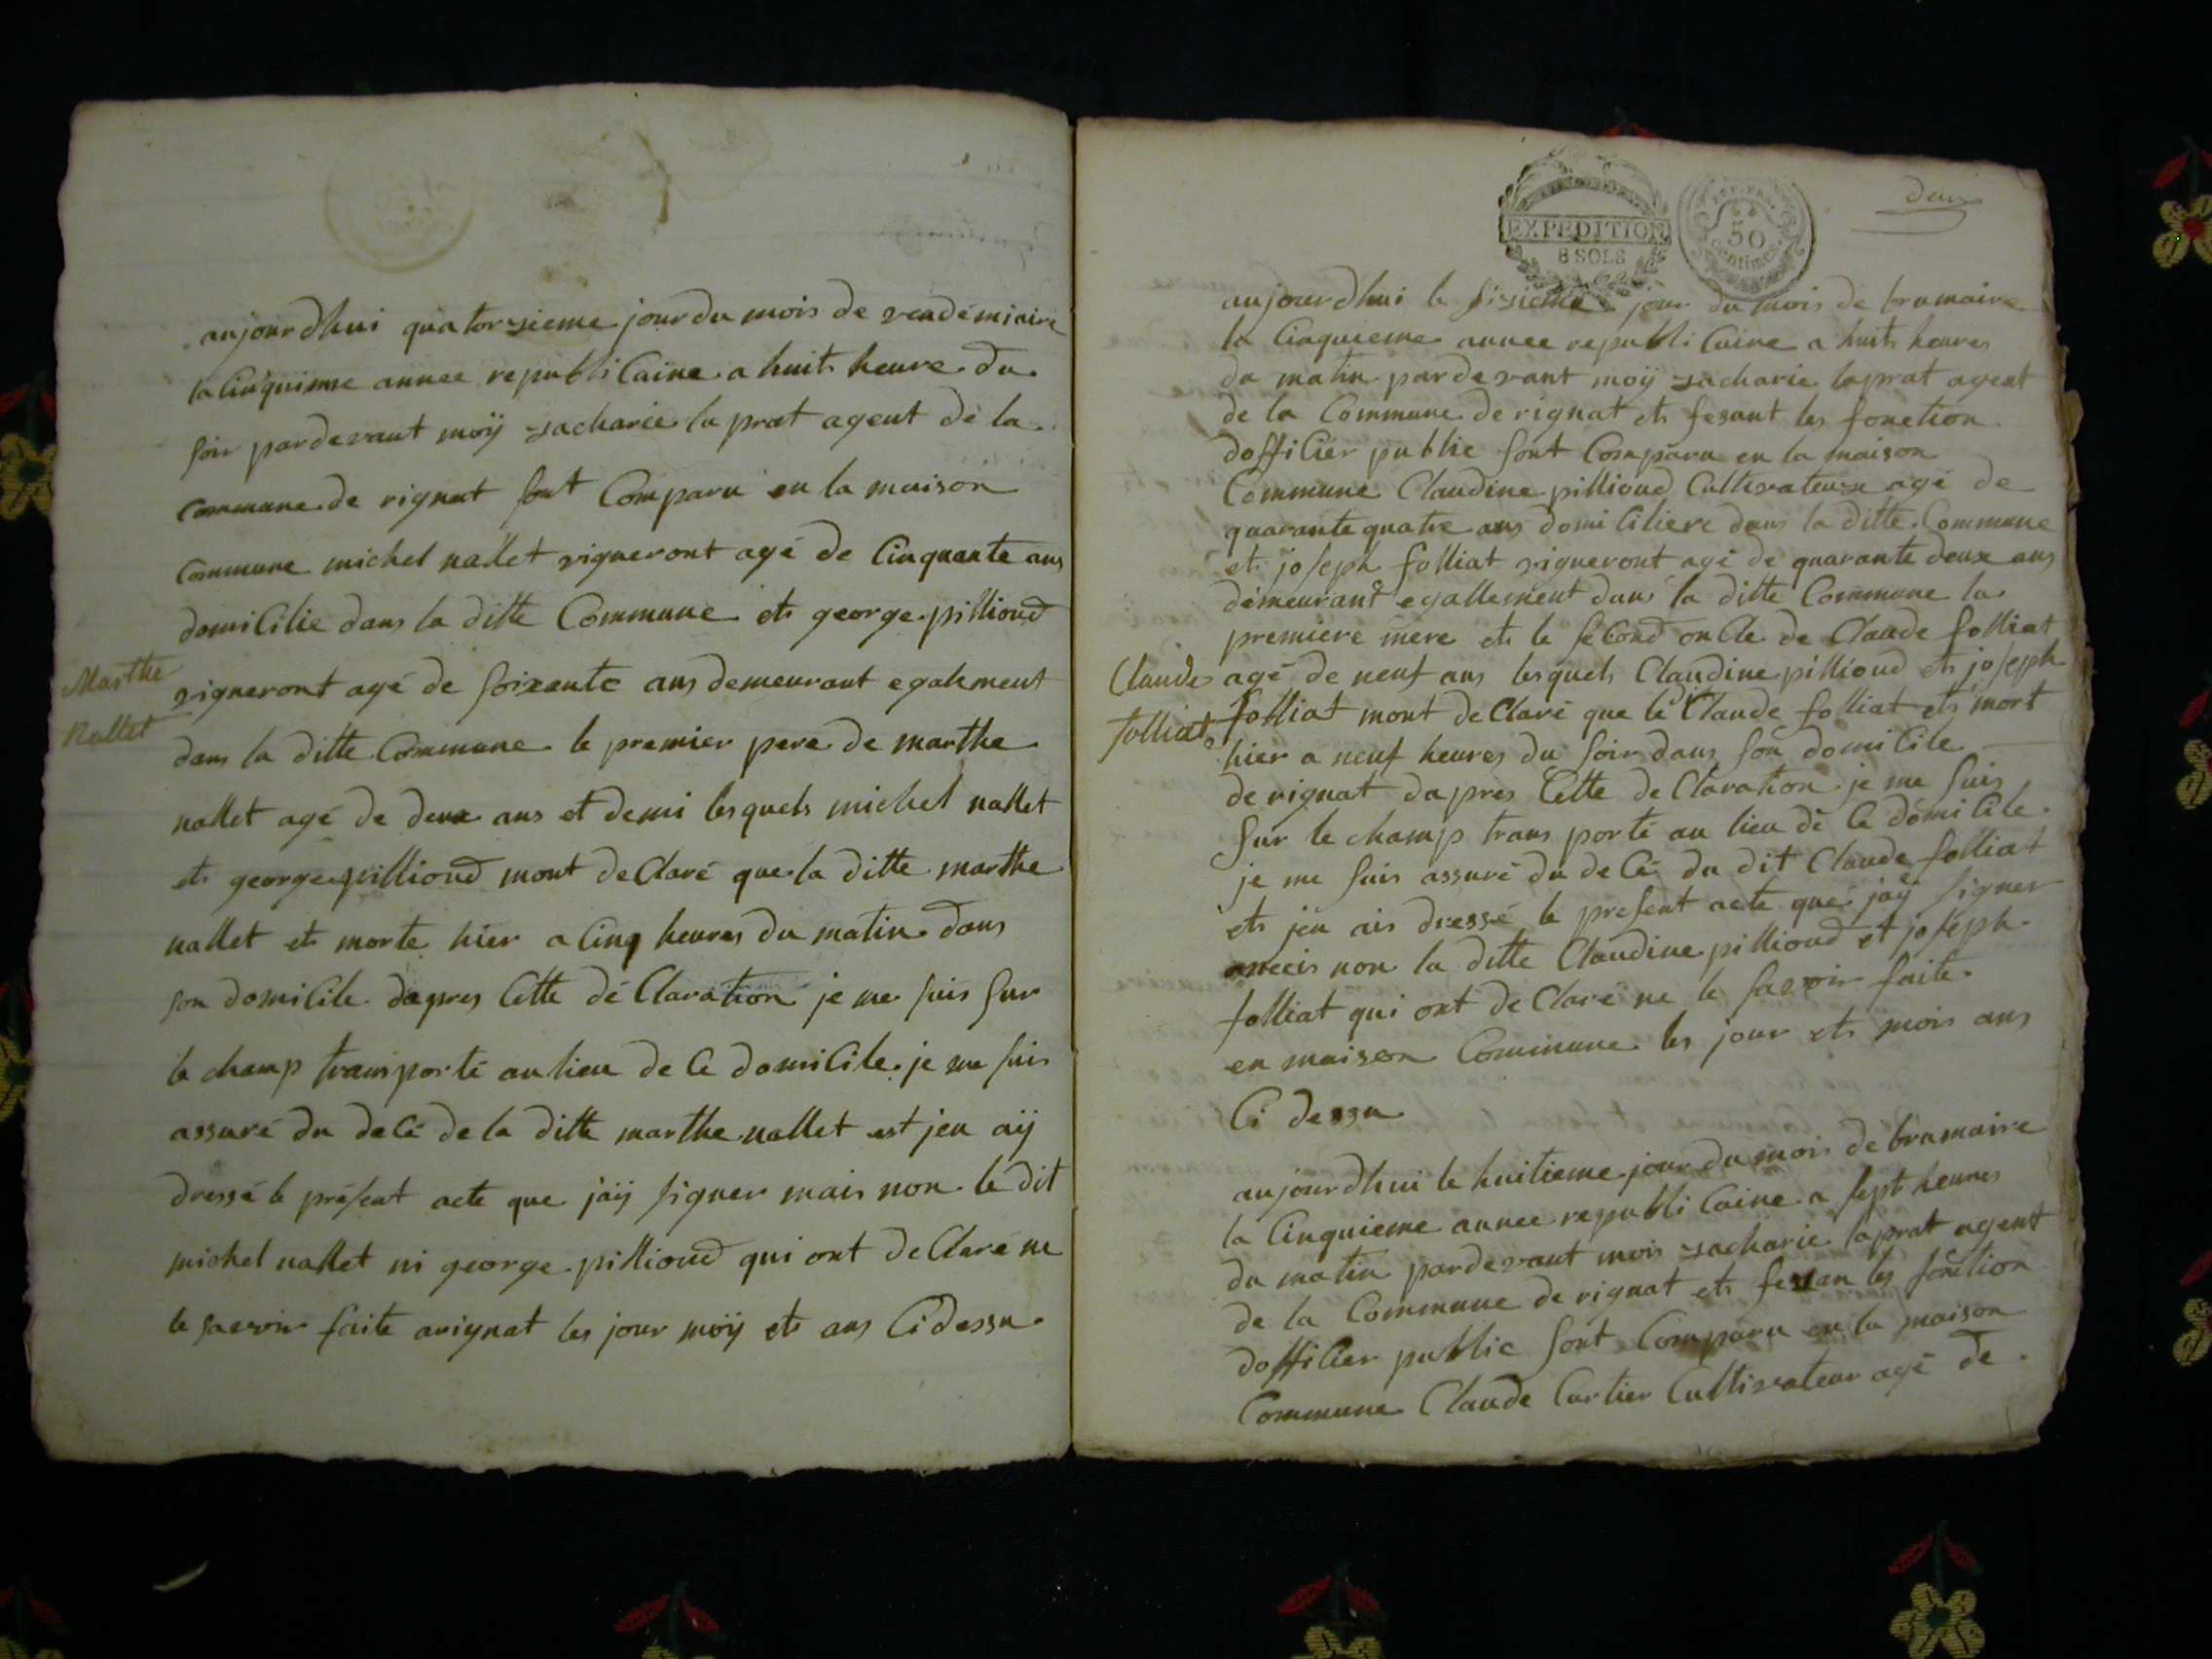 aujourdhui quatorsieme jour du mois de vendémiaire
la Cinquieme annee republiCaine a huit heure du
soir pardevant moÿ zacharie laprat agent de la
commune de rignat sont Comparu en la maison
commune michel nallet vigneront agé de Cinquante ans
domiCilie dans la ditte Commune et george pillioud
Marthe
Nallet
vigneront agé de soixante ans demeurant egalement
dans la ditte Commune le premier pere de marthe
nallet agé de deux ans et demi lesquels michel nallet
et george pillioud mont deClaré que la ditte marthe
nallet et morte hier a Cinq heures du matin dans
son domiCile dapres Cette déClaration je me suis sur
le champ transporté au lieu de Ce domiCile je me suis
assuré du deCé de la ditte marthe nallet est jeu aÿ
dressé le présent acte que jaÿ signer mais non le dit
michel nallet ni george pillioud qui ont deClaré ne
le savoir faite arignat les jour moÿ et ans Cidessu
EXPEDITION
8 SOLS
50
centimes
deux
aujourdhui le sisieme jour du mois de brumaire
la Cinquieme annee republiCaine a huit heures
du matin pardevant moÿ zacharie laprat agent
de la Commune de rignat et fesant les fonction
doffiCier public sont Comparu en la maison
Commune Claudine pillioud Cultivateuse agé de
quarante quatre ans domiCiliere dans la ditte Commune
et joseph folliat vigneront agé de quarante deux ans
demeurant egallement dans la ditte Commune la
premiere mere et le seCond onCle de Claude folliat
Claude
folliat
agé de neuf ans lesquels Claudine pillioud et joseph
folliat mont deClaré que le Claude folliat et mort
hier a neuf heures du soir dans son domiCile
de rignat dapres Cette deClaration je me suis
sur le champ transporté au lieu de Ce domiCile
je me suis assuré du deCé du dit Claude folliat
et jeu ais dressé le present acte que jaÿ signer
non la ditte Claudine pillioud et joseph
folliat qui ont deClaré ne le savoir faite
en maison Commune les jour et mois ans
Ci dessu
aujourdhui le huitieme jour du mois de brumaire
la Cinquieme annee republiCaine a sept heures
du matin pardevant mois zacharie laprat agent
de la Commune de rignat et fesan les fonction
doffiCier public sont Comparu en la maison
Commune Claude Cartier Cultivateur agé de